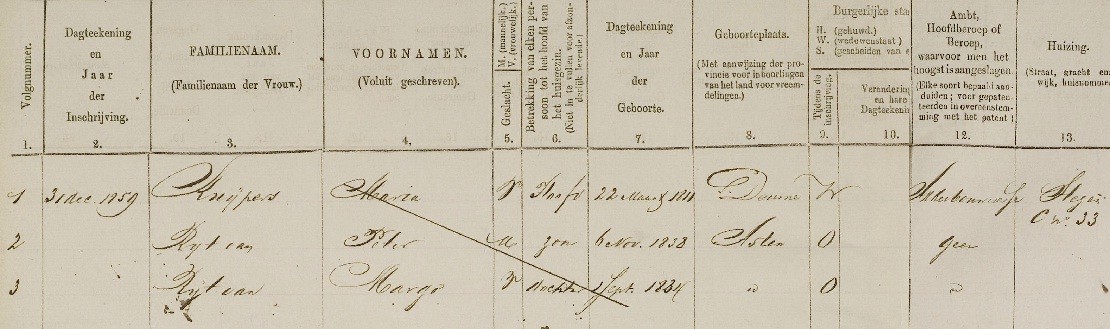 Volgnummer.
1.
Dagteekening
en
Jaar
der
Inschrijving.
2.
FAMILIENAAM.
(Familienaam der Vrouw.)
3.
VOORNAMEN.
(Voluit geschreven).
4.
Geslacht. M. (mannelijk.)
V. (vrouwelijk.)
5.
Betrekking van elken per-
soon tot het hoofd van
het huisgezin.
(Niet in te vullen voor afzon-
derlijk levende)
6.
Dagteekening
en Jaar
der
Geboorte.
7.
Geboorteplaats.
(Met aanwijzing der pro-
vincie voor inboorlingen
van het land voor vreem-
delingen.)
8.
Burgerlijke sta
H. (gehuwd.)
W. (weduwenstaat)
S. (gescheiden van e
Tijdens de
inschrijving.
9.
Verandering
en hare
Dagteekenin
10.
Ambt,
Hoofdberoep of
Beroep,
waarvoor men het
hoogst is aangeslagen.
(Elke soort bepaald aan-
duiden; voor gepaten-
teerden in overeenstem-
ming met het patent)
12.
Huizing.
(Straat, gracht en
wijk, huisnumme
13.
1 31 dec. 1859 Kuijpers Maria V Hoofd 22 Maart Deurne W
C No. 33
2 Rijt van Peter M zoon 6 Nov. 1838 Asten O geen
3 Rijt van Margo V dochter Sept. 1834 " O "